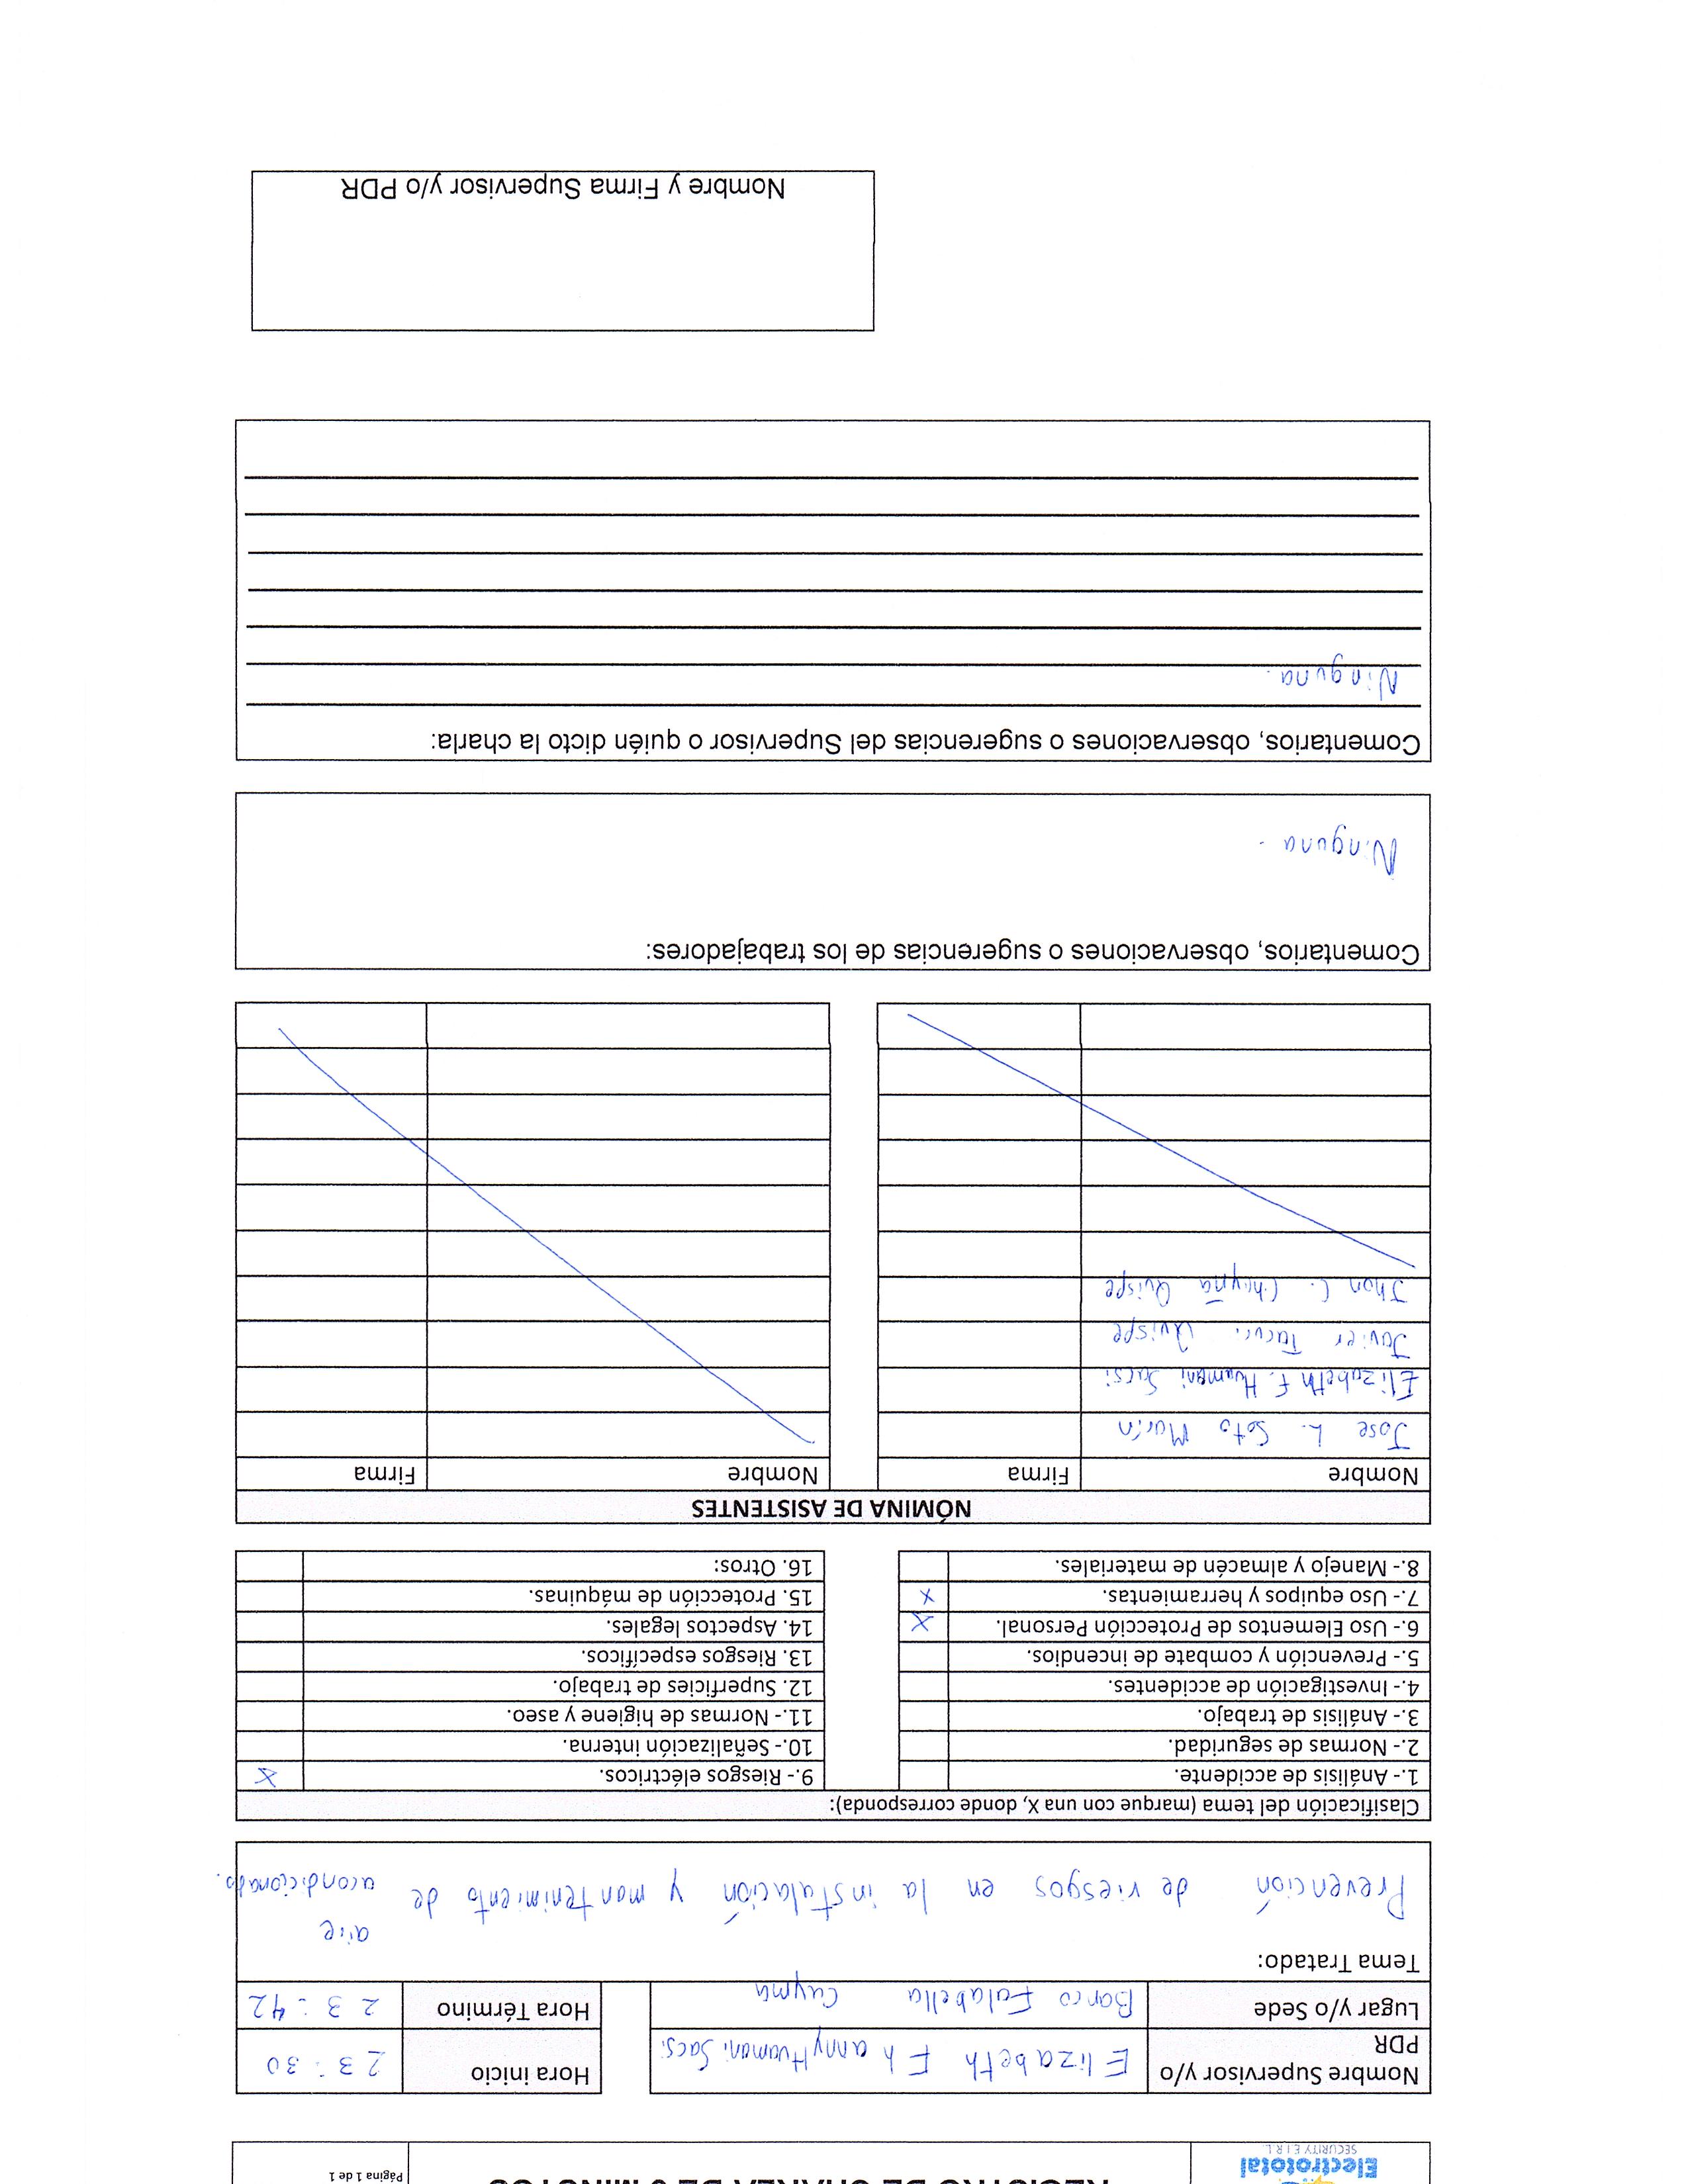 Electrototal
SECURITY E I R L.
REGISTRO DE CHARLA DE 5 MINUTOS
Página 1 de 1
Nombre Supervisor y/o PDR
Elizabeth Fhanny Huamani Sacsi
Hora inicio
23:30
Lugar y/o Sede
Banco Falabella Cayma
Hora Término
23:42
Tema Tratado:
Prevención de riesgos en la instalación y mantenimiento de aire acondicionado.
Clasificación del tema (marque con una X, donde corresponda):
1.- Análisis de accidente.
9.- Riesgos eléctricos. X
2.- Normas de seguridad.
10.- Señalización interna.
3.- Análisis de trabajo.
11.- Normas de higiene y aseo.
4.- Investigación de accidentes.
12. Superficies de trabajo.
5.- Prevención y combate de incendios.
13. Riesgos específicos.
6.- Uso Elementos de Protección Personal. X
14. Aspectos legales.
7.- Uso equipos y herramientas. X
15. Protección de máquinas.
8.- Manejo y almacén de materiales.
16. Otros:
NÓMINA DE ASISTENTES
Nombre Firma Nombre Firma
Jose L. Soto Marín
Elizabeth F. Huamani Sacsi
Javier Quispe
Jhon C. Chayña Quispe
Comentarios, observaciones o sugerencias de los trabajadores:
Ninguna.
Comentarios, observaciones o sugerencias del Supervisor o quién dicto la charla:
Ninguna.
Nombre y Firma Supervisor y/o PDR